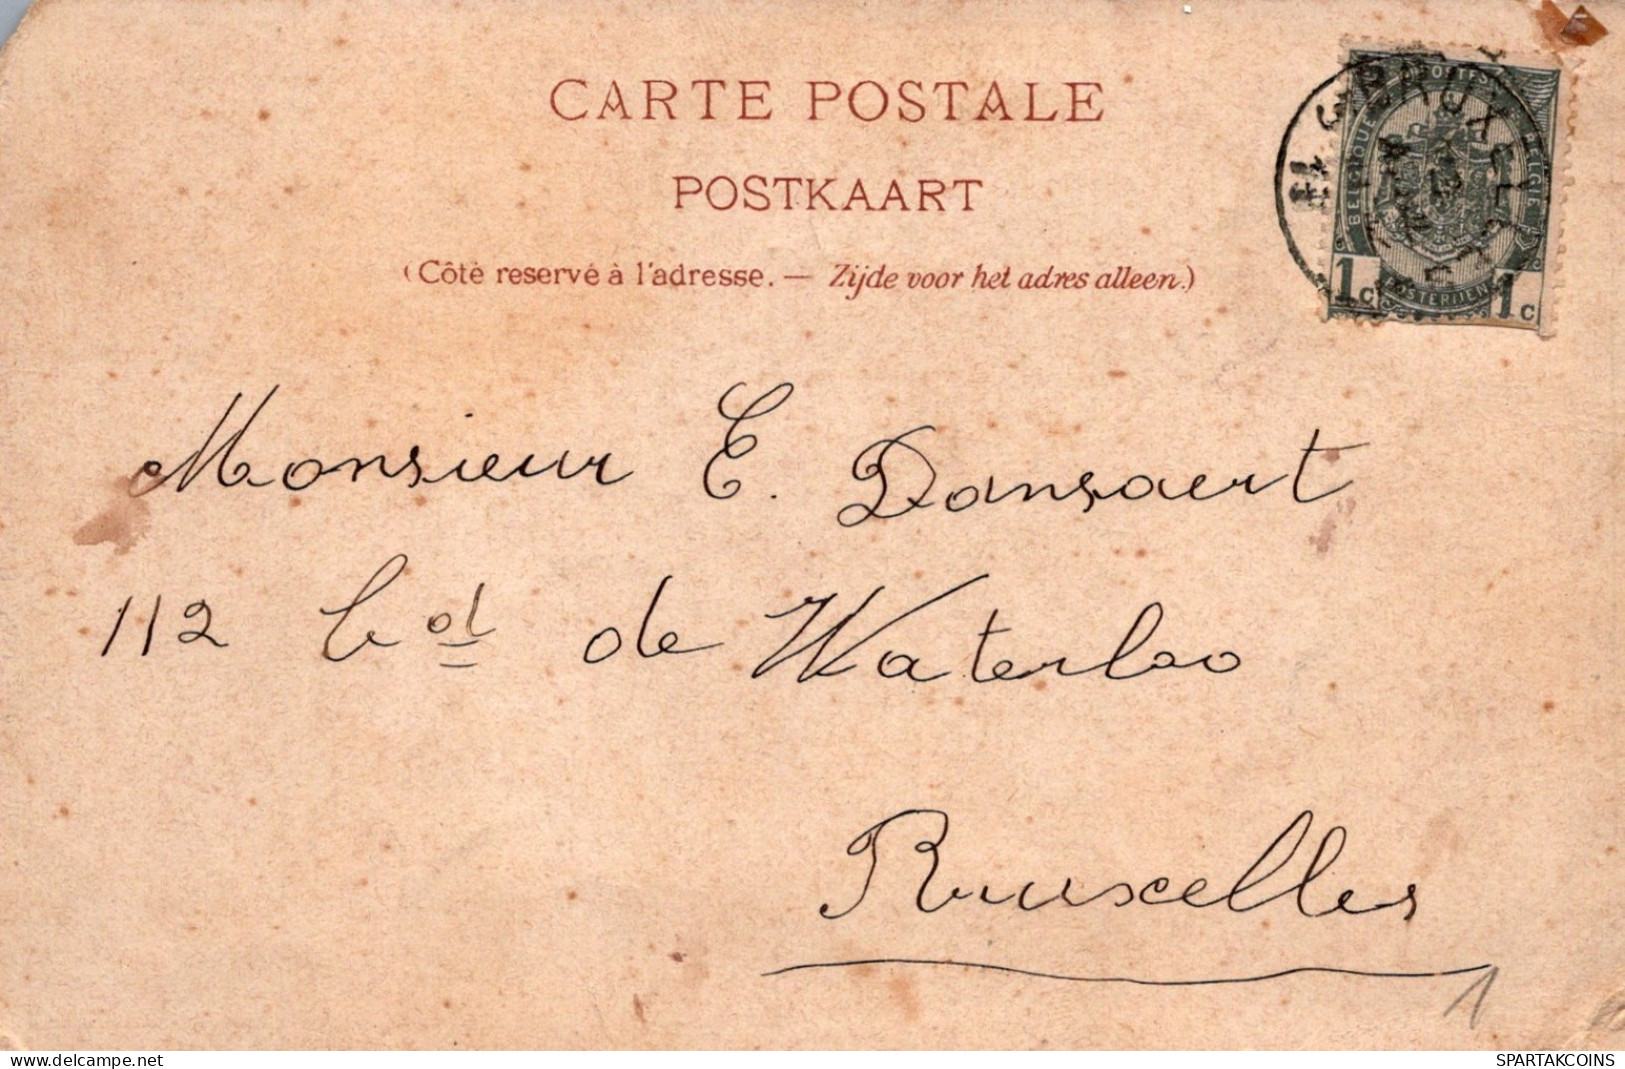 CARTE POSTALE
POSTKAART
(Côté reservé à l'adresse. — Zijde voor het adres alleen.)
BRUXELLES
BELGIQUE
1c 1c
Monsieur E. Dansaert
112 bd de Waterloo
Bruxelles
1
delcampe.net
SPARTAKCOINS